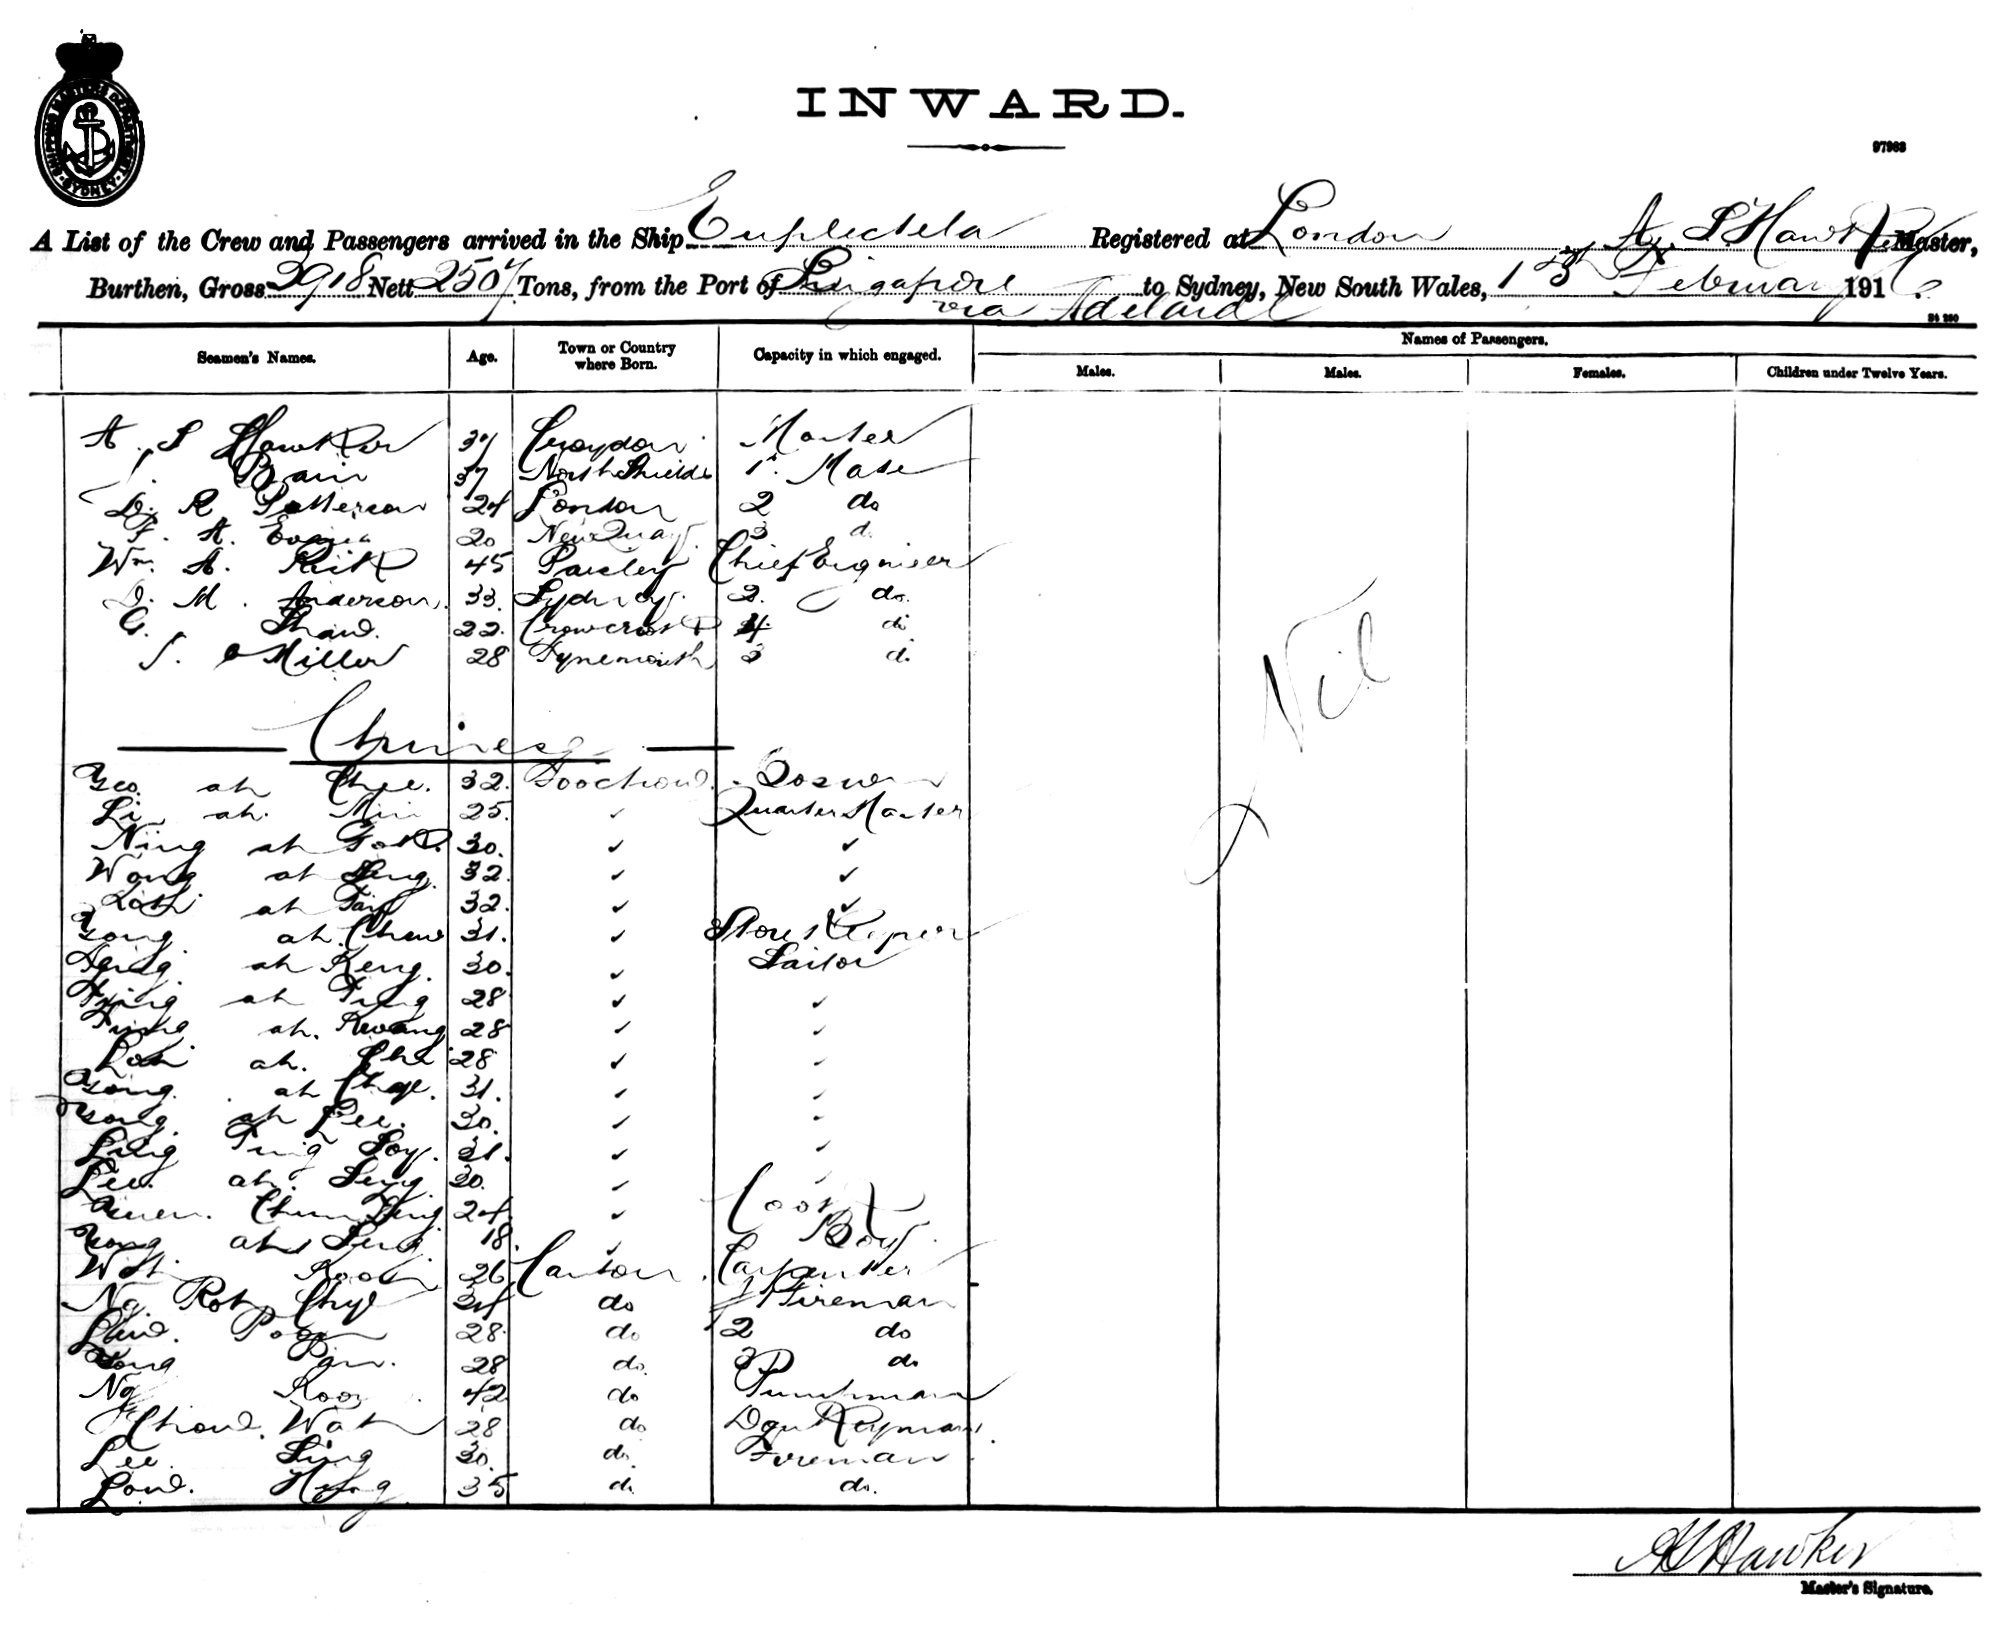 SHIPPING MASTER'S DEPARTMENT SYDNEY
INWARD.
97963
A List of the Crew and Passengers arrived in the Ship Euplectela Registered at London A. S. Hawker Master,
Burthen, Gross 3918 Nett 2507 Tons, from the Port of Singapore to Sydney, New South Wales, 13th February 1916.
via Adelaide
Seamen's Names. Age. Town or Country where Born. Capacity in which engaged. Names of Passengers.
Males. Males. Females. Children under Twelve Years.
A. S Hawker 37 Croydon Master
Bain 37 North Shields 1st Mate
D. R Patterson 24 London 2 do
F. A. Evans 20 New Quay 3 d.
Wm. A. Kirk 45 Paisley Chief Engineer
D. M. Anderson. 33. Sydney. 2. do.
G. Shaw. 22. 4. do
J. Miller 28 Tynemouth 3 d.
Nil
Chinese
Yeo ah Chee. 32. Foochow.
Li ah. Min 25. Quarter Master
Ning ah 30.
Wong ah Seng. 32.
ah 32.
Yong ah. Chow 31. Store Keeper
ah Keng. 30. Sailor
ah Ting 28
ah. Kwang 28
ah. 28
Yong. ah 31.
Yong. ah Lee. 30.
Ling Ting Soy. 31.
Lee. ah. Seng. 30.
Chun 24 Cook
Yong ah Seng 18. Boy
26 Canton. Carpenter
Ng 34 do 1 Fireman
28. do 2 do
Yong 28 do. 3 do
Ng 42 do
Chow. Wah 28 do Donkeyman.
Lee. Sing 30. do. Fireman.
Low. 35 d. do.
A S Hawker
Master's Signature.